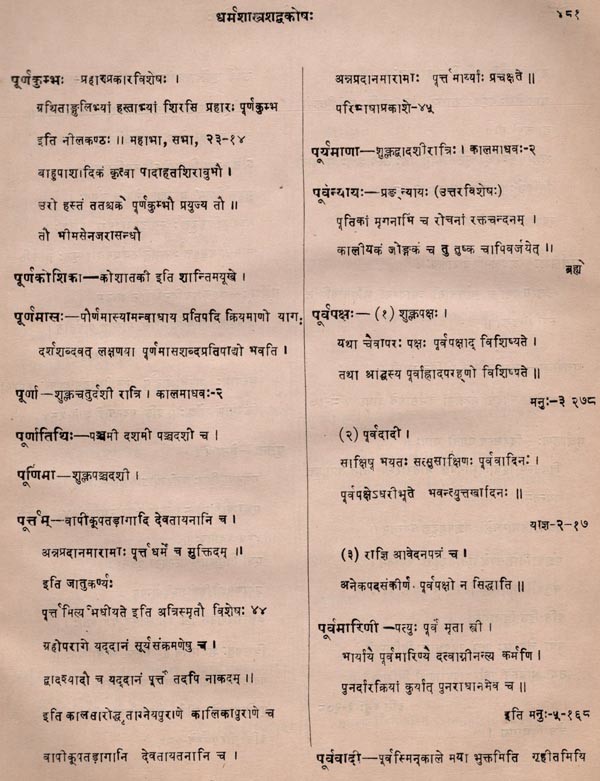 धर्मशास्त्रशद्वकोषः
४८१
पूर्णकुम्भः प्रहारप्रकारविशेषः ।
ग्रथिताङ्गुलिभ्यां हस्ताभ्यां शिरसि प्रहारः पूर्णकुम्भ
इति नीलकण्ठः ॥ महाभा, सभा, २३-१४
बाहुपाशादिकं कृत्वा पादाहतशिरावुभौ ।
उरो हस्तं ततश्चक्रे पूर्णकुम्भौ प्रयुज्य तौ ॥
तौ भीमसेनजरासन्धौ
पूर्णकोशिका—कोशातकी इति शान्तिमयूखे ।
पूर्णमासः—पौर्णमास्यामन्वाधाय प्रतिपदि क्रियमाणो यागः
दर्शशब्दवत् लक्षणया पूर्णमासशब्दप्रतिपाद्यो भवति ।
पूर्णा—शुक्लचतुर्दशी रात्रि । कालमाधवः-२
पूर्णातिथिः—पञ्चमी दशमी पञ्चदशी च ।
पूर्णिमा—शुक्लपञ्चदशी ।
पूर्त्तम्—वापीकूपतडागादि देवतायनानि च ।
अन्नप्रदानमारामाः पूर्त्तधर्मं च मुक्तिदम् ॥
इति जातुकर्ण्यः
पूर्त्तमित्यभिधीयते इति अत्रिस्मृतौ विशेषः ४४
ग्रहोपरागे यद्दानं सूर्यसंक्रमणेषु च ।
द्वादश्यादौ च यद्दानं पूर्त्तं तदपि नाकदम् ।
इति कालतारोद्धृताग्नेयपुराणे कालिकापुराणे च
वापीकूपतडागानि देवतायतनानि च ।
अन्नप्रदानमारामाः पूर्त्तमार्य्याः प्रचक्षते ॥
परिभाषाप्रकाशे-४५
पूर्यमाणा—शुक्लद्वादशीरात्रिः । कालमाधवः-२
पूर्वन्यायः—प्राङ्न्यायः (उत्तरविशेषः)
पूतिकां मृगनाभिं च रोचनां रक्तचन्दनम् ।
कालीयकं जोङ्गकं च तु तुष्क चापिवर्जयेत् ॥
ब्रह्मे
पूर्वपक्षः— (१) शुक्लपक्षः ।
यथा चैवापरः पक्षः पूर्वपक्षाद् विशिष्यते ।
तथा श्राद्धस्य पूर्वाह्लादपरह्णो विशिष्यते ॥
मनुः-३ २७८
(२) पूर्वदादी ।
साक्षिषु भयतः सत्सुसाक्षिणः पूर्ववादिनः ।
पूर्वपक्षेऽधरीभूते भवन्त्युत्तरवादिनः ॥
याज्ञ-२-१७
(३) राज्ञि आवेदनपत्रं च ।
अनेकपदसंकीर्णः पूर्वपक्षो न सिद्धाति ॥
पूर्वमारिणी —पत्युः पूर्वं मृता स्त्री ।
भार्यायै पूर्वमारिण्यै दत्वाग्नीनन्त्य कर्मणि ।
पुनर्दारक्रियां कुर्यात् पुनराधानमेव च ॥
इति मनुः-५-१६८
पूर्ववादी—पूर्वस्मिन्काले मया भुक्तमिति गृहीतमियि